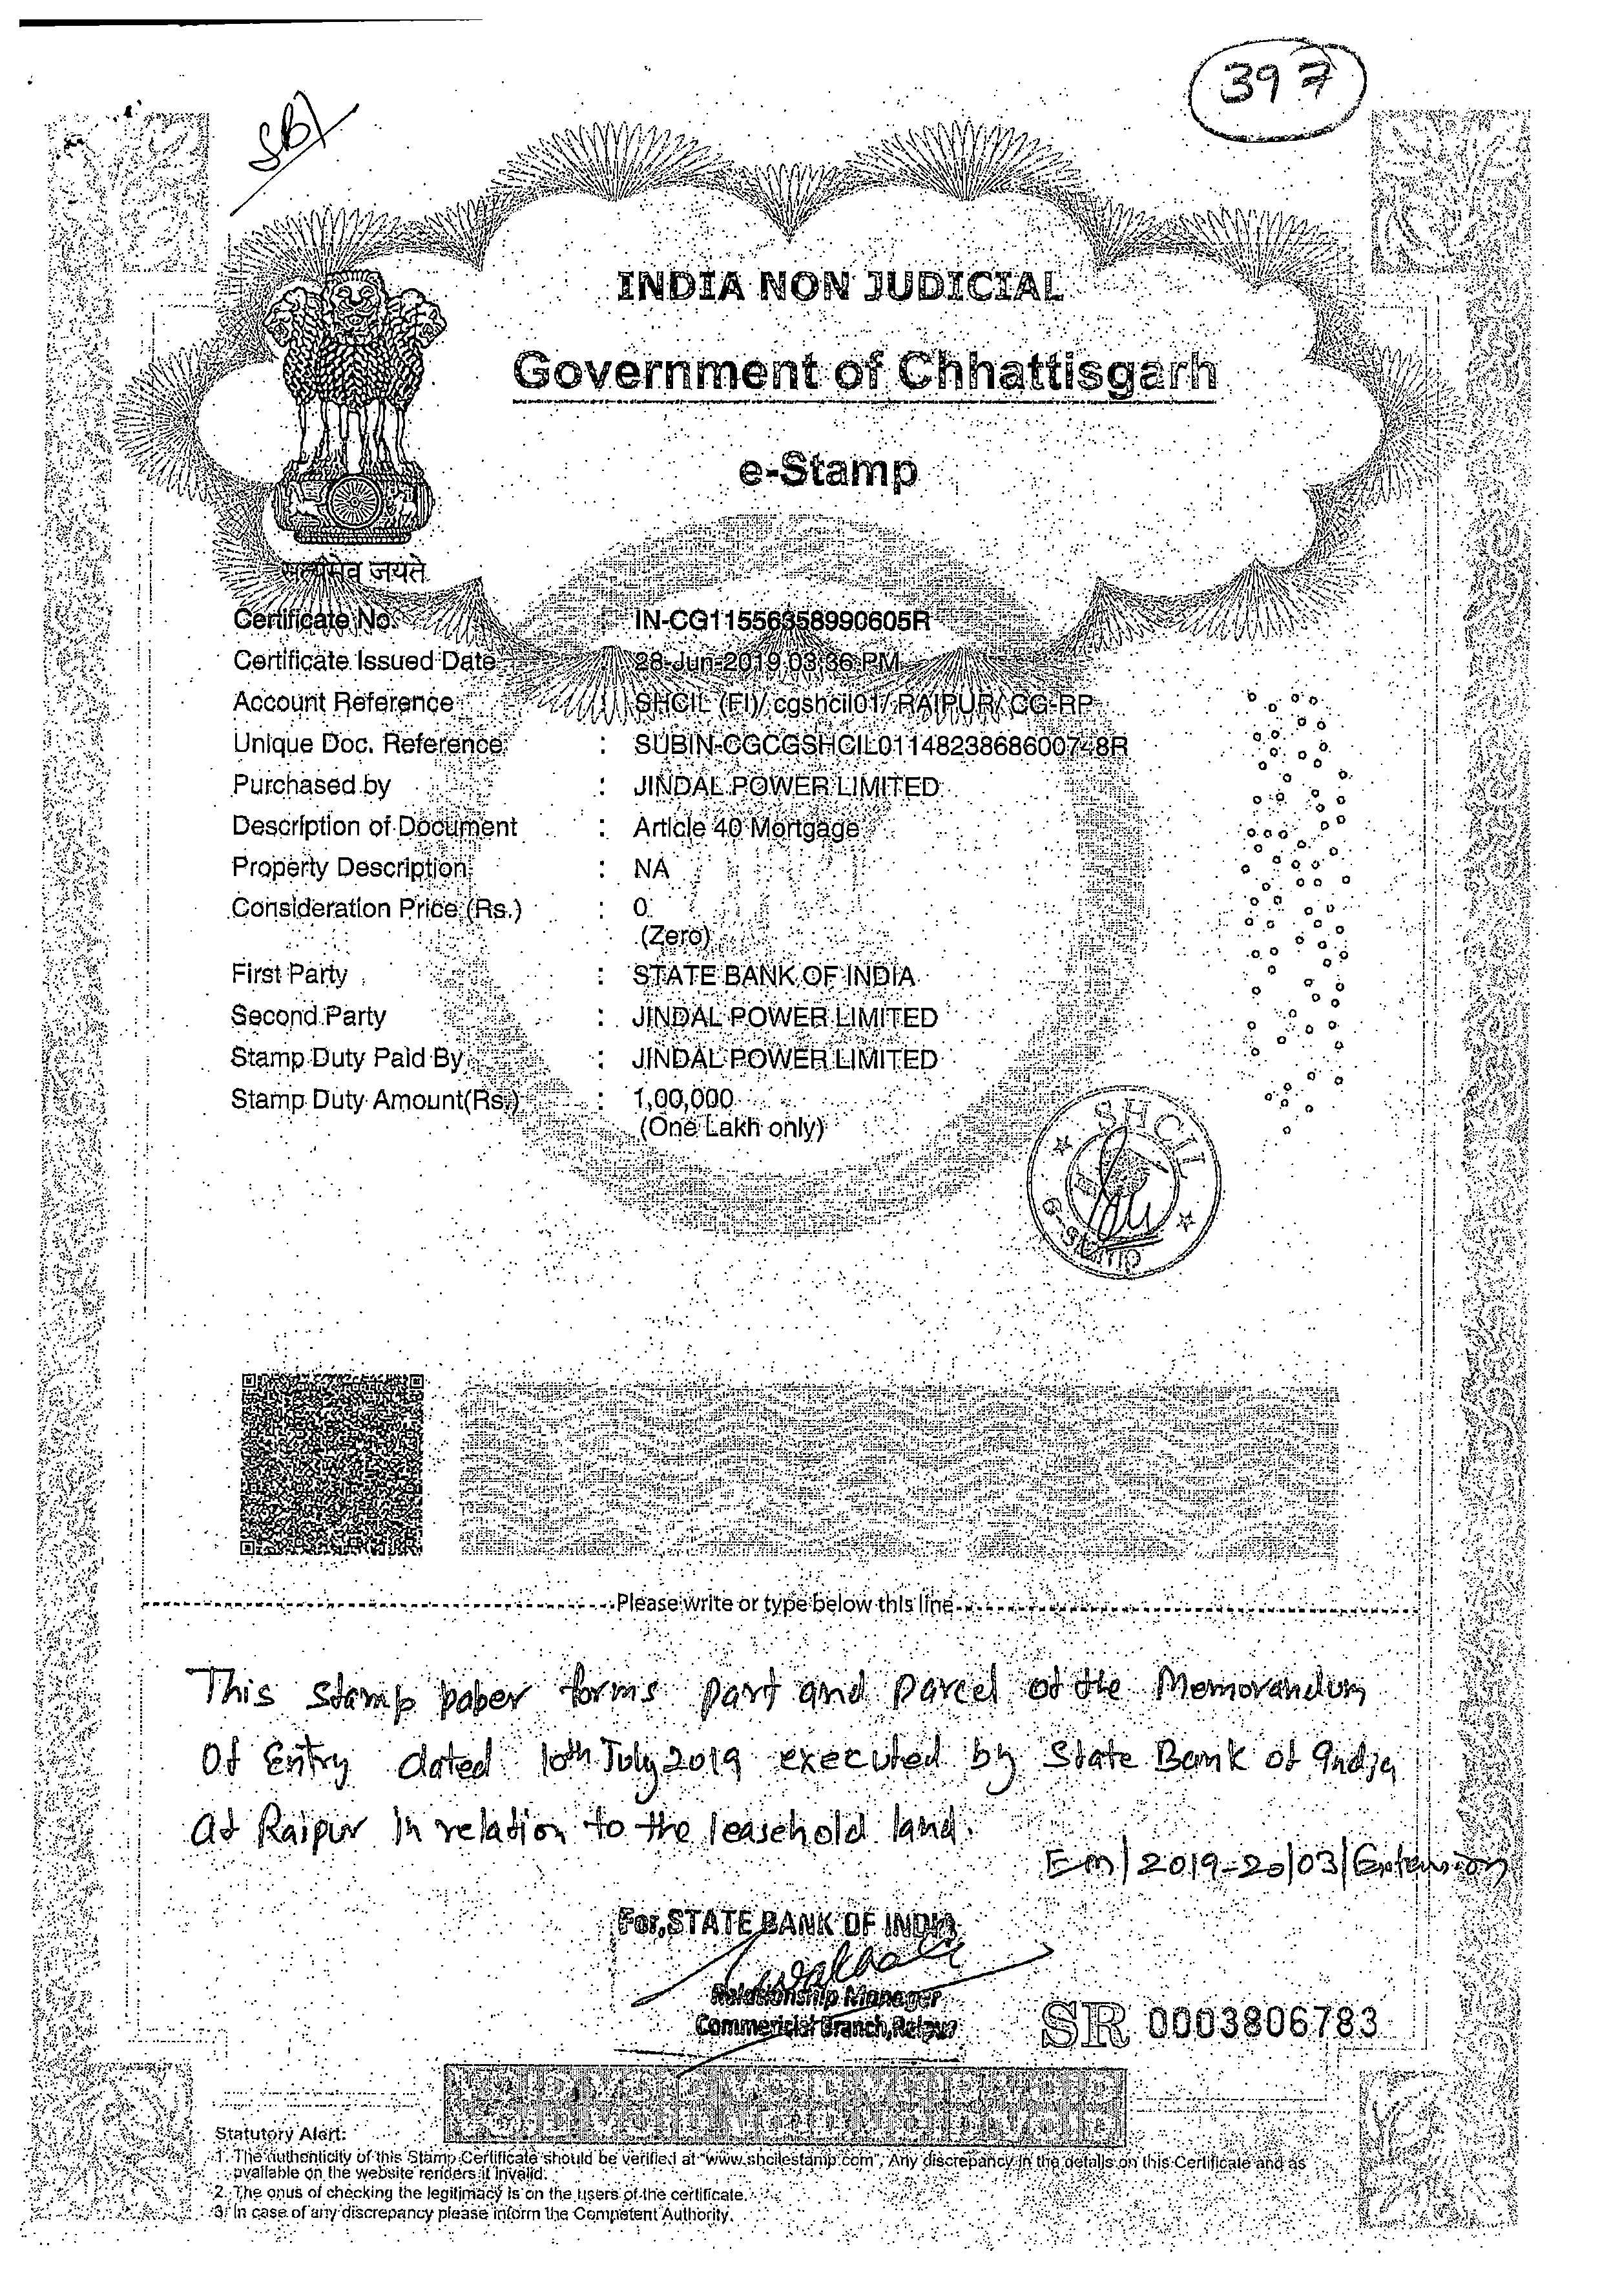 397
SBI
INDIA NON JUDICIAL
Government of Chhattisgarh
e-Stamp
सत्यमेव जयते
Certificate No. : IN-CG11556358990605R
Certificate Issued Date : 28-Jun-2019 03:36 PM
Account Reference : SHCIL (FI)/ cgshcil01/ RAIPUR/ CG-RP
Unique Doc. Reference : SUBIN-CGCGSHCIL0114823868600748R
Purchased by : JINDAL POWER LIMITED
Description of Document : Article 40 Mortgage
Property Description : NA
Consideration Price (Rs.) : 0
(Zero)
First Party : STATE BANK OF INDIA
Second Party : JINDAL POWER LIMITED
Stamp Duty Paid By : JINDAL POWER LIMITED
Stamp Duty Amount(Rs.) : 1,00,000
(One Lakh only)
SHCIL
e-Stamp
Please write or type below this line
This stamp paper forms part and parcel of the Memorandum
Of Entry dated 10th July 2019 executed by State Bank of India
at Raipur in relation to the leasehold land.
Em/2019-20/03/Extension
For, STATE BANK OF INDIA
Relationship Manager
Commericial Branch, Raipur
SR 0003806783
Statutory Alert:
1. The authenticity of this Stamp Certificate should be verified at "www.shcilestamp.com". Any discrepancy in the details on this Certificate and as
available on the website renders it invalid.
2. The onus of checking the legitimacy is on the users of the certificate.
3. In case of any discrepancy please inform the Competent Authority.